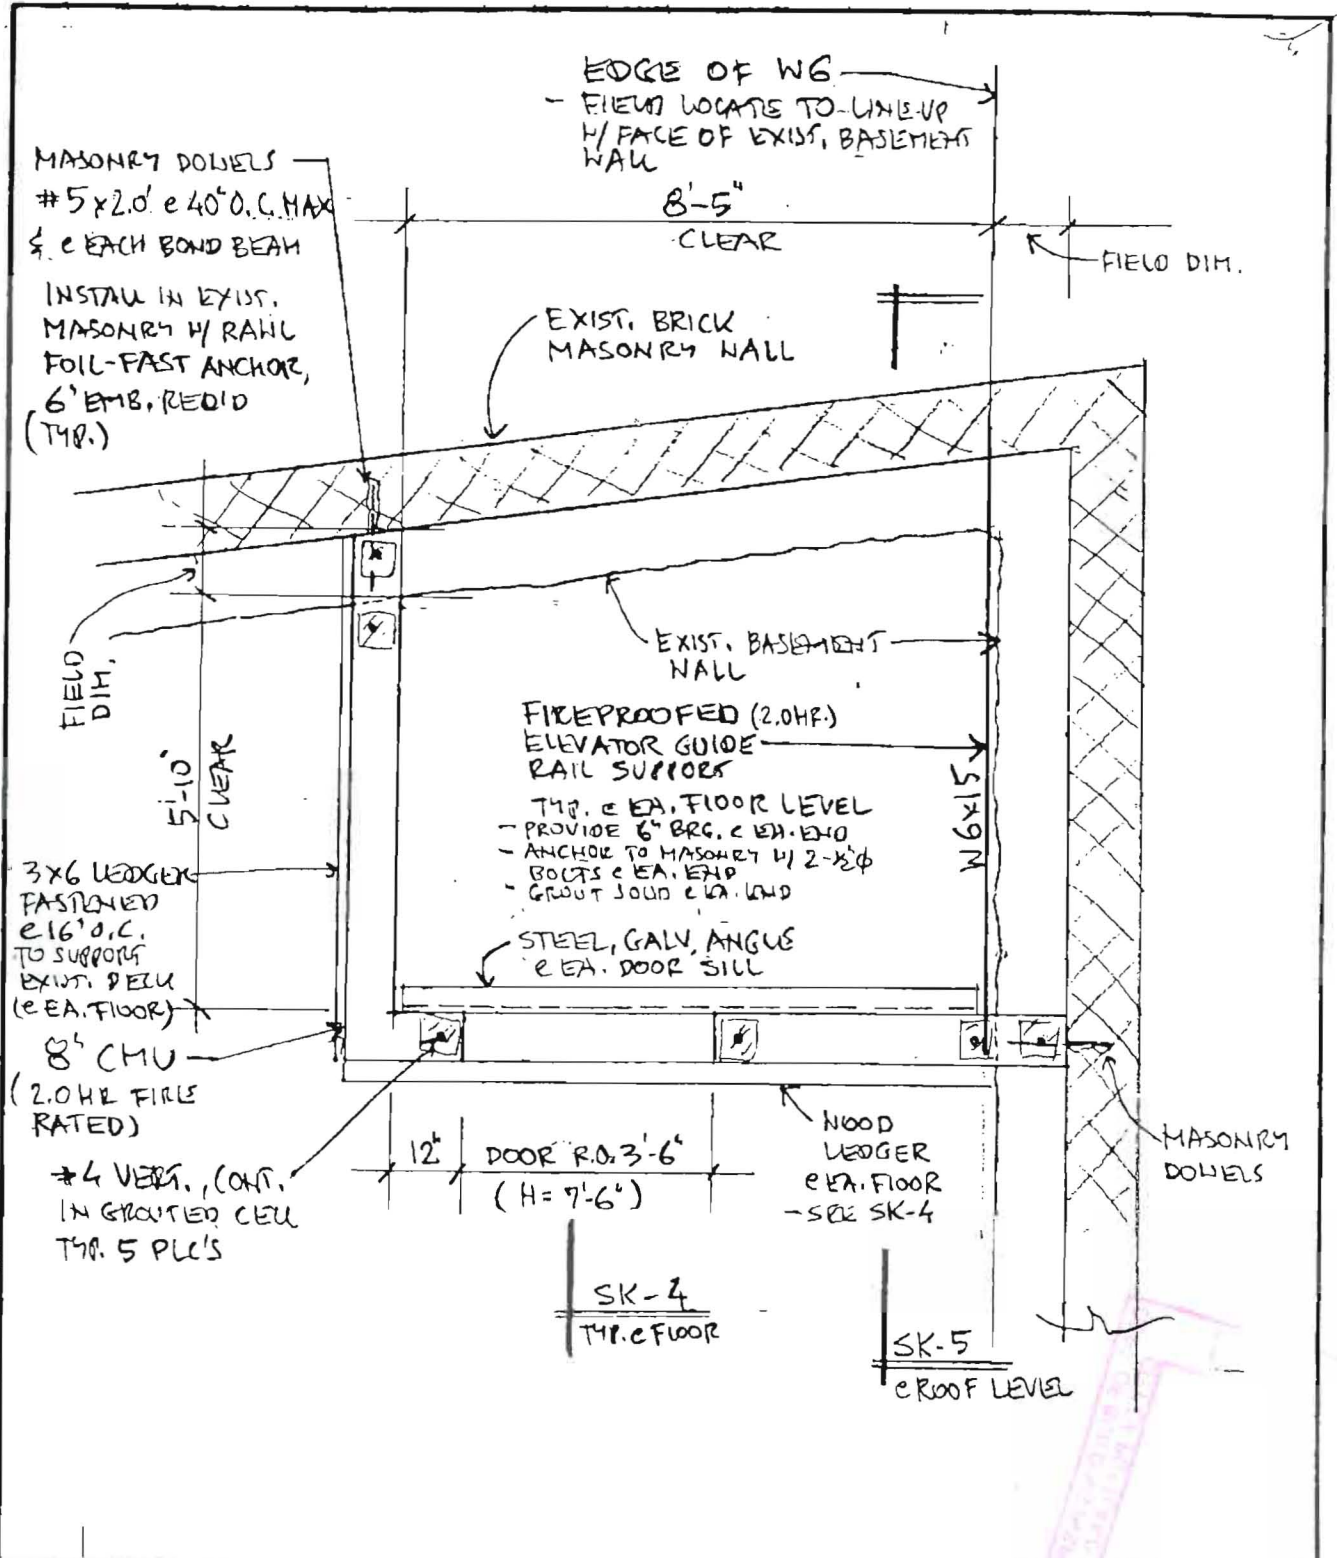 EDGE OF W6
- FIELD LOCATE TO LINE-UP
W/ FACE OF EXIST. BASEMENT
WALL
8'-5"
CLEAR
FIELD DIM.
MASONRY DOWELS
#5 x 2.0' @ 40" O.C. MAX
& @ EACH BOND BEAM
INSTALL IN EXIST.
MASONRY W/ RAWL
FOIL-FAST ANCHOR,
6" EMB. REQ'D
(TYP.)
EXIST. BRICK
MASONRY WALL
FIELD
DIM.
EXIST. BASEMENT
WALL
5'-10"
CLEAR
FIREPROOFED (2.0 HR.)
ELEVATOR GUIDE
RAIL SUPPORT
TYP. @ EA. FLOOR LEVEL
- PROVIDE 6" BRG. @ EA. END
- ANCHOR TO MASONRY W/ 2-½"φ
BOLTS @ EA. END
- GROUT SOLID @ EA. END
W6x15
3x6 LEDGER
FASTENED
@ 16" O.C.
TO SUPPORT
EXIST. DECK
(@ EA. FLOOR)
STEEL, GALV. ANGLE
@ EA. DOOR SILL
8" CMU
(2.0 HR FIRE
RATED)
#4 VERT., CONT.
IN GROUTED CELL
TYP. 5 PLC'S
12"
DOOR R.O. 3'-6"
(H = 7'-6")
WOOD
LEDGER
@ EA. FLOOR
- SEE SK-4
MASONRY
DOWELS
SK-4
TYP. @ FLOOR
SK-5
@ ROOF LEVEL